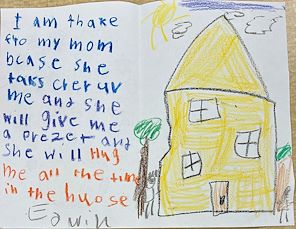 I am thake
fro my mom
bcase she
taks cler uv
me and she
will give me
a prezet and
she will Hug
me all the tim
in the huose
Edwin